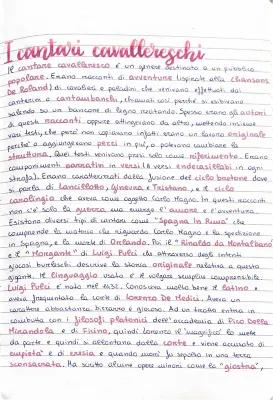 I cantari cavallereschi
Il cantare cavalleresco è un genere destinato a un pubblico
popolare. Erano racconti di avventure (ispirate alla chanson
De Roland) di cavalieri e paladini che venivano effettuati dai
canterini o cantambanchi, chiamati così perché si esibivano
salendo su un bancone di legno rialzato. Spesso erano gli autori
di questi racconti oppure attingevano da altro, mettendo insieme
vari testi, che però non copiavano infatti erano un lavoro originale
perché o aggiungevano pezzi in più, o potevano cambiare la
struttura (dei testi venivano presi solo come riferimento). Erano
componimenti narrativi in versi (8 versi endecasillabi in ogni
strofa). Erano caratterizzati dalla fusione del ciclo bretone dove
si parla di Lancillotto, Ginevra e Tristano, e il ciclo
carolingio che aveva come oggetto Carlo Magno. In questi racconti
non c'è solo la guerra ma anche l'amore e l'avventura.
Esistono diversi tipi di cantari come "Spagna in Rima" che
comprende la materia che riguarda Carlo Magno e la spedizione
in Spagna, e la morte di Orlando. Poi il "Rinaldo da Montalbano"
e il "Morgante" di Luigi Pulci che attraverso degli intenti
giocosi burleschi descrive la storia originale relativa a questo
gigante. Il linguaggio usato è il volgare semplice comprensibile.
Luigi Pulci è nato nel 1432. Conosceva molto bene il latino e
aveva frequentato la corte di Lorenzo De Medici. Aveva un
carattere abbastanza bizzarro e giocoso. Ad un tratto entra in
contrasto con i filosofi platonici dell'accademia di Pico Della
Mirandola e di Ficino, quindi Lorenzo il "magnifico" lo mette
da parte e quindi si allontana dalla corte e viene accusato di
empietà e di eresia e quando morì fu sepolto in una terra
sconsacrata. Ha scritto alcune opere minori come la "giostra",